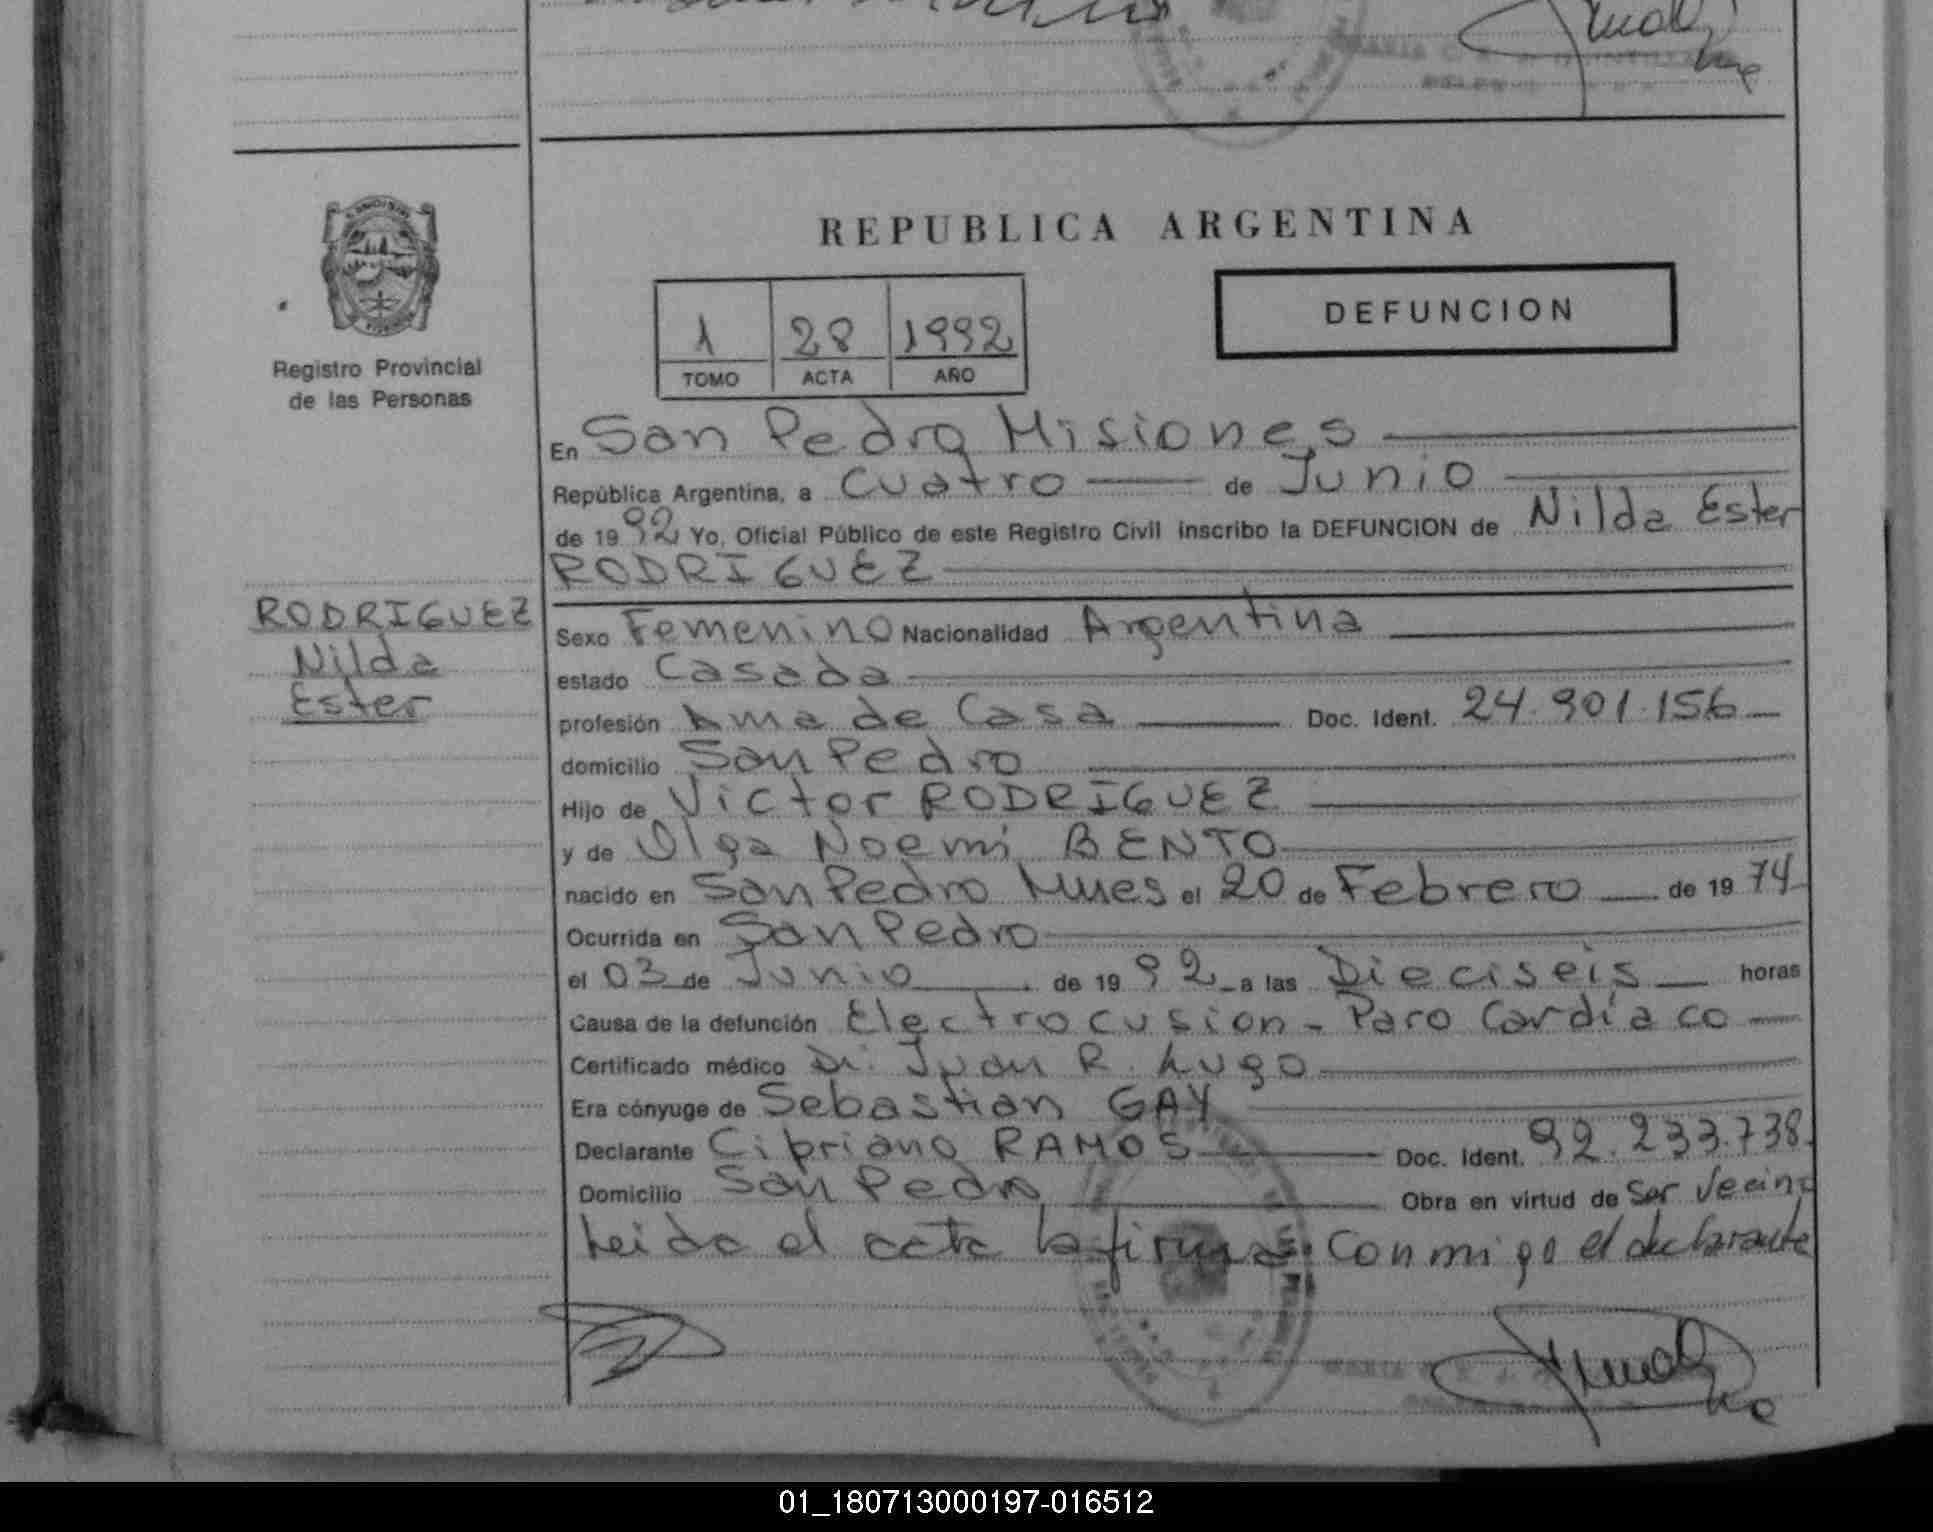 REPUBLICA ARGENTINA
1 28 1992
TOMO ACTA AÑO
DEFUNCION
Registro Provincial
de las Personas
En San Pedro Misiones
República Argentina, a Cuatro de Junio
de 1992 Yo, Oficial Público de este Registro Civil inscribo la DEFUNCION de Nilda Ester
RODRIGUEZ
RODRIGUEZ
Nilda
Ester
Sexo Femenino Nacionalidad Argentina
estado Casada
profesión Ama de Casa Doc. Ident. 24.901.156
domicilio San Pedro
Hijo de Victor RODRIGUEZ
y de Olga Noemi BENTO
nacido en San Pedro Mnes el 20 de Febrero de 1974
Ocurrida en San Pedro
el 03 de Junio de 1992 a las Dieciseis horas
Causa de la defunción Electrocusion - Paro Cardíaco
Certificado médico Dr. Juan R. Lugo
Era cónyuge de Sebastian GAY
Declarante Cipriano RAMOS Doc. Ident. 92.233.738
Domicilio San Pedro Obra en virtud de Ser Vecino
Leida el acta la firma Conmigo el declarante
01_180713000197-016512